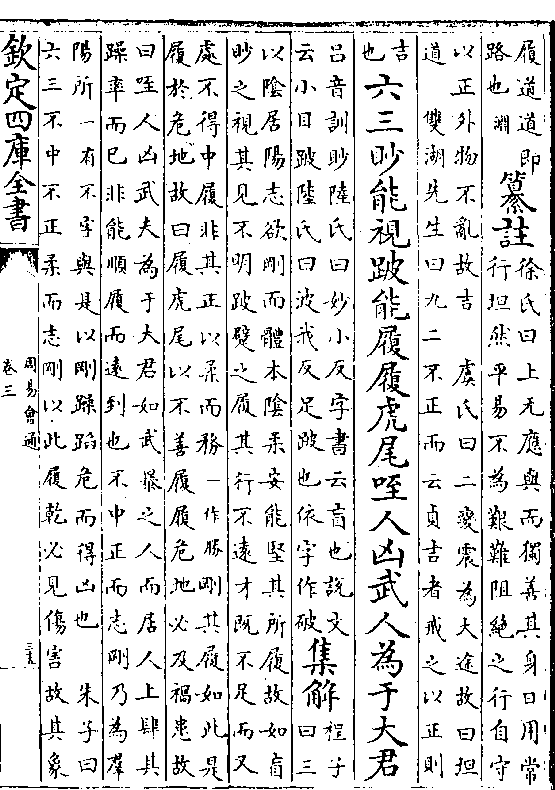 履道道即
路也淵
纂註
徐氏曰上无應與而獨善其身日用常
行坦然平易不為艱難阻絶之行自守
以正外物不亂故吉　虞氏曰二變震為大途故曰坦
道　雙湖先生曰九二不正而云貞吉者戒之以正則
吉
也
六三眇能視跛能履履虎尾咥人凶武人為于大君
吕音訓眇陸氏曰妙小反字書云盲也說文
云小目跛陸氏曰波我反足跛也依字作破
集解
程子
曰三
以陰居陽志欲剛而體本陰柔安能堅其所履故如盲
眇之視其見不明跛躄之履其行不遠才既不足而又
處不得中履非其正以柔而務一作勝剛其履如此是
履於危地故曰履虎尾以不善履履危地必及禍患故
曰咥人凶武夫為于大君如武暴之人而居人上肆其
躁率而已非能順履而遠到也不中正而志剛乃為羣
陽所一有不字與是以剛躁蹈危而得凶也　朱子曰
六三不中不正柔而志剛以此履乾必見傷害故其象
欽定四庫全書
周易會通
卷三